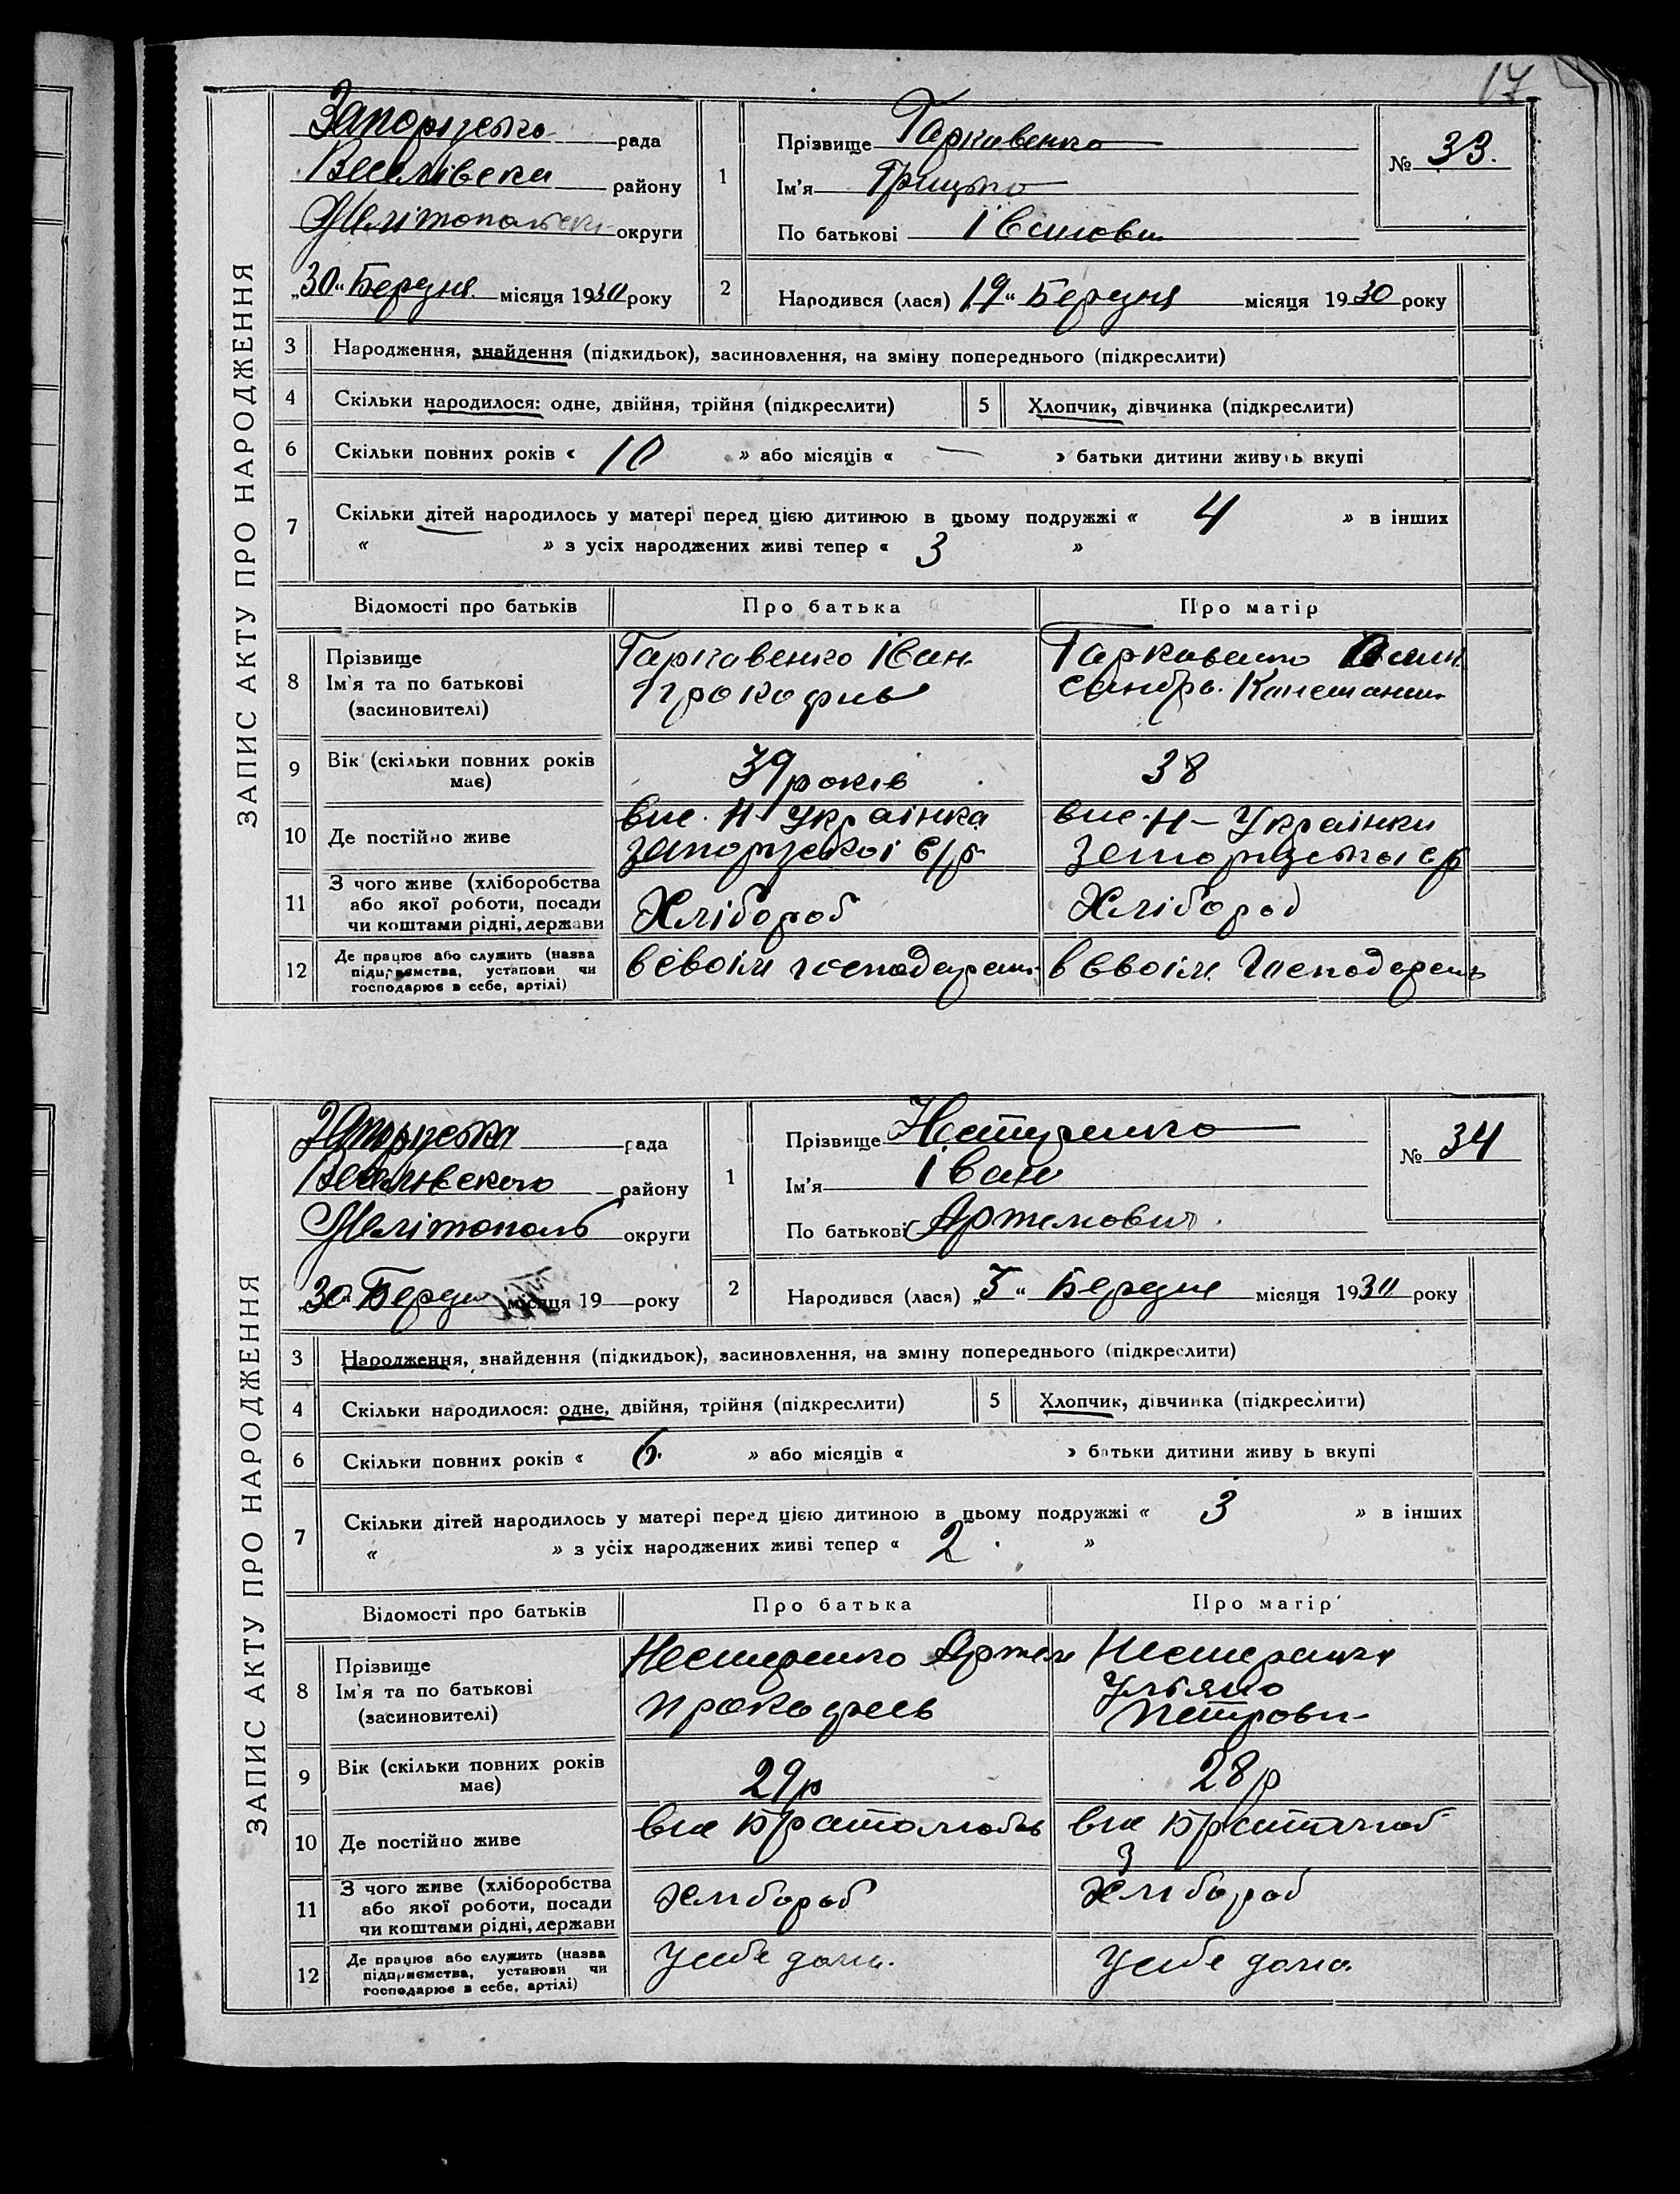 17
ЗАПИС АКТУ ПРО НАРОДЖЕННЯ
Запоризька рада
Веселівськ району
Мелітопольськ округи
„30“ Березня місяця 1930 року
1
Прізвище Гаркавенко
Ім'я Грицько
По батькові Іванови
№ 33.
2
Народився (лася) 19“ Березня місяця 1930 року
3 Народження, знайдення (підкидьок), засиновлення, на зміну попереднього (підкреслити)
4 Скільки народилося: одне, двійня, трійня (підкреслити) 5 Хлопчик, дівчинка (підкреслити)
6 Скільки повних років « 10 » або місяців « — » батьки дитини живуть вкупі
7 Скільки дітей народилось у матері перед цією дитиною в цьому подружжі « 4 » в інших
« » з усіх народжених живі тепер « 3 »
Відомості про батьків Про батька Про матір
8 Прізвище
Ім'я та по батькові
(засиновителі)
Гаркавенко Іван
Прокофив
Гаркавенко
9 Вік (скільки повних років
має)
39 років
38
10 Де постійно живе
вис. Н-Українка
запоризької с/р
вис. Н-Українки
11 З чого живе (хліборобства
або якої роботи, посади
чи коштами рідні, держави
Хлібороб
Хлібороб
12 Де працює або служить (назва
підприємства, установи чи
господарює в себе, артілі)
в своїм господарст
в своїм Господарств
ЗАПИС АКТУ ПРО НАРОДЖЕННЯ
Запоризька рада
Веселівского району
Мелітополь округи
„30“ Березня місяця 19 року
1
Прізвище Нестеренко
Ім'я Іван
По батькові Артемович
№ 34
2
Народився (лася) „5“ Березня місяця 1930 року
3 Народження, знайдення (підкидьок), засиновлення, на зміну попереднього (підкреслити)
4 Скільки народилося: одне, двійня, трійня (підкреслити) 5 Хлопчик, дівчинка (підкреслити)
6 Скільки повних років « 6. » або місяців « » батьки дитини живу ь вкупі
7 Скільки дітей народилось у матері перед цією дитиною в цьому подружжі « 3 » в інших
« » з усіх народжених живі тепер « 2 »
Відомості про батьків Про батька Про матір
8 Прізвище
Ім'я та по батькові
(засиновителі)
Нестеренко Артем
Прокофієв
Нестеренко
Ульяно
Петрови-
9 Вік (скільки повних років
має)
29р
28р
10 Де постійно живе
вис Братолюбов
вис Братолюб
11 З чого живе (хліборобства
або якої роботи, посади
чи коштами рідні, держави
Хлібороб
Хлібороб
12 Де працює або служить (назва
підприємства, установи чи
господарює в себе, артілі)
У себе дома.
У себе дома